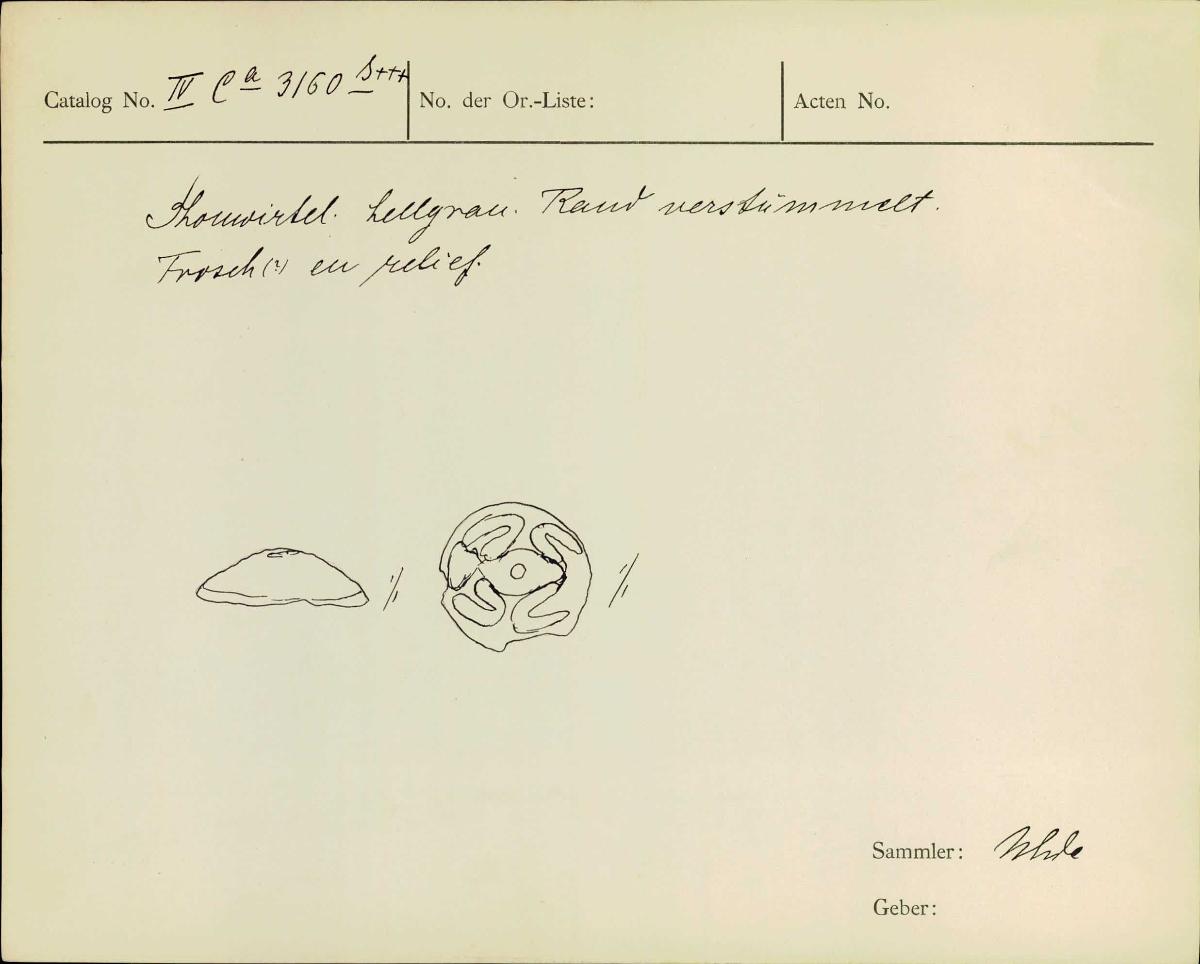 Catalog No. IV Ca 3160 s+++ No. der Or.-Liste: Acten No.
Thonwirtel. hellgrau. Rand verstümmelt.
Frosch(?) en relief.
1/1 1/1
Sammler: Uhde
Geber: